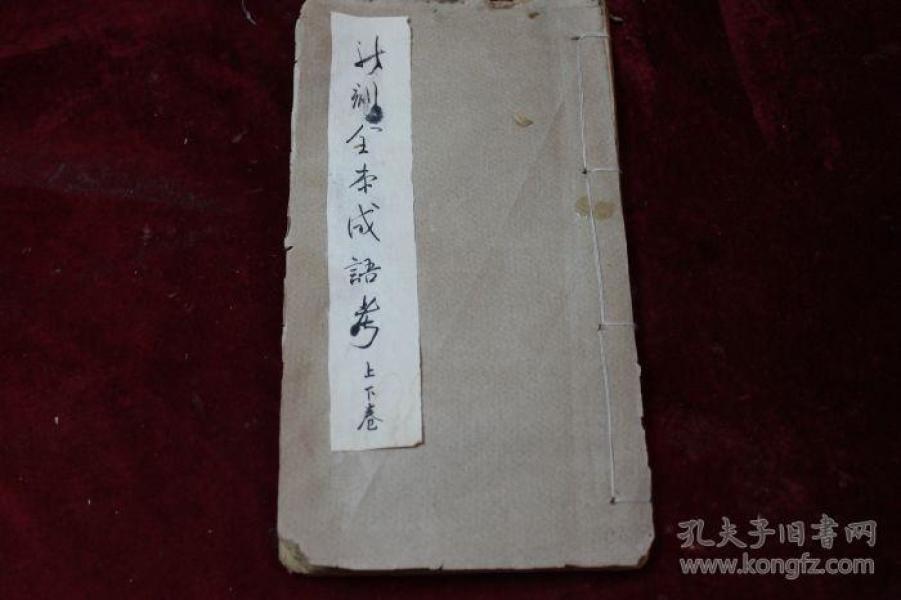 新訓全本成語考上下卷
孔夫子旧書网
www.kongfz.com